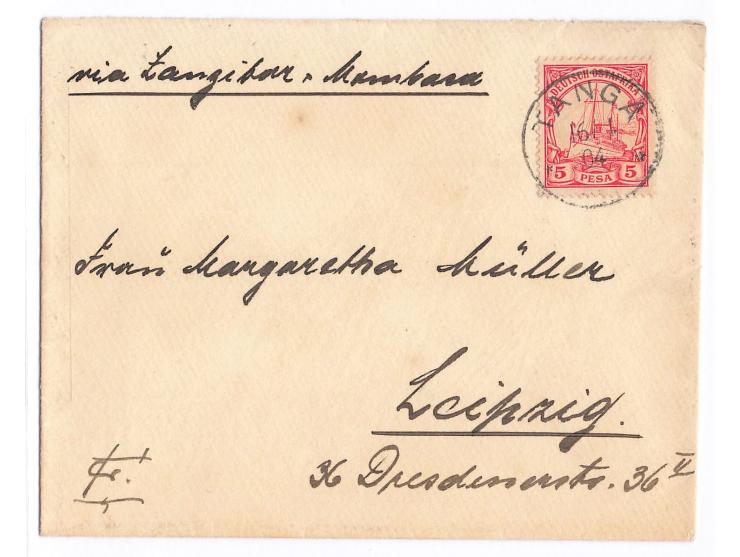 via Zanzibar - Mombasa
DEUTSCH-OSTAFRIKA
TANGA
16/1
04
* *
5 PESA 5
Fraŭ Margaretha Müller
Leipzig.
Fr.
36 Dresdenerstr. 36 II